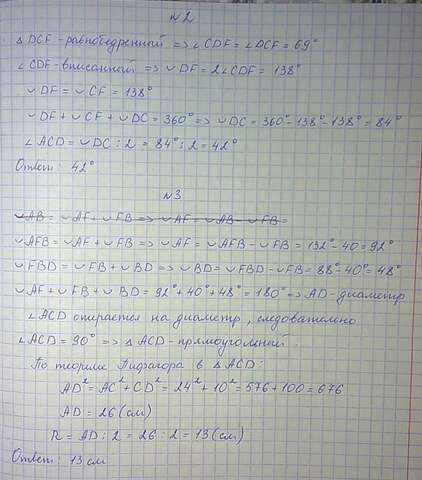 №2
△DCF - равнобедренный => ∠CDF = ∠DCF = 69°
∠CDF - вписанный => ◡DF = 2∠CDF = 138°
◡DF = ◡CF = 138°
◡DF + ◡CF + ◡DC = 360° => ◡DC = 360° - 138° - 138° = 84°
∠ACD = ◡DC : 2 = 84° : 2 = 42°
Ответ: 42°
№3
◡AB = ◡AF + ◡FB => ◡AF = ◡AB - ◡FB =
◡AFB = ◡AF + ◡FB => ◡AF = ◡AFB - ◡FB = 132° - 40 = 92°
◡FBD = ◡FB + ◡BD => ◡BD = ◡FBD - ◡FB = 88° - 40° = 48°
◡AF + ◡FB + ◡BD = 92° + 40° + 48° = 180° => AD - диаметр
∠ACD опирается на диаметр, следовательно
∠ACD = 90° => △ACD - прямоугольный.
По теореме Пифагора в △ACD:
AD² = AC² + CD² = 24² + 10² = 576 + 100 = 676
AD = 26 (см)
R = AD : 2 = 26 : 2 = 13 (см)
Ответ: 13 см